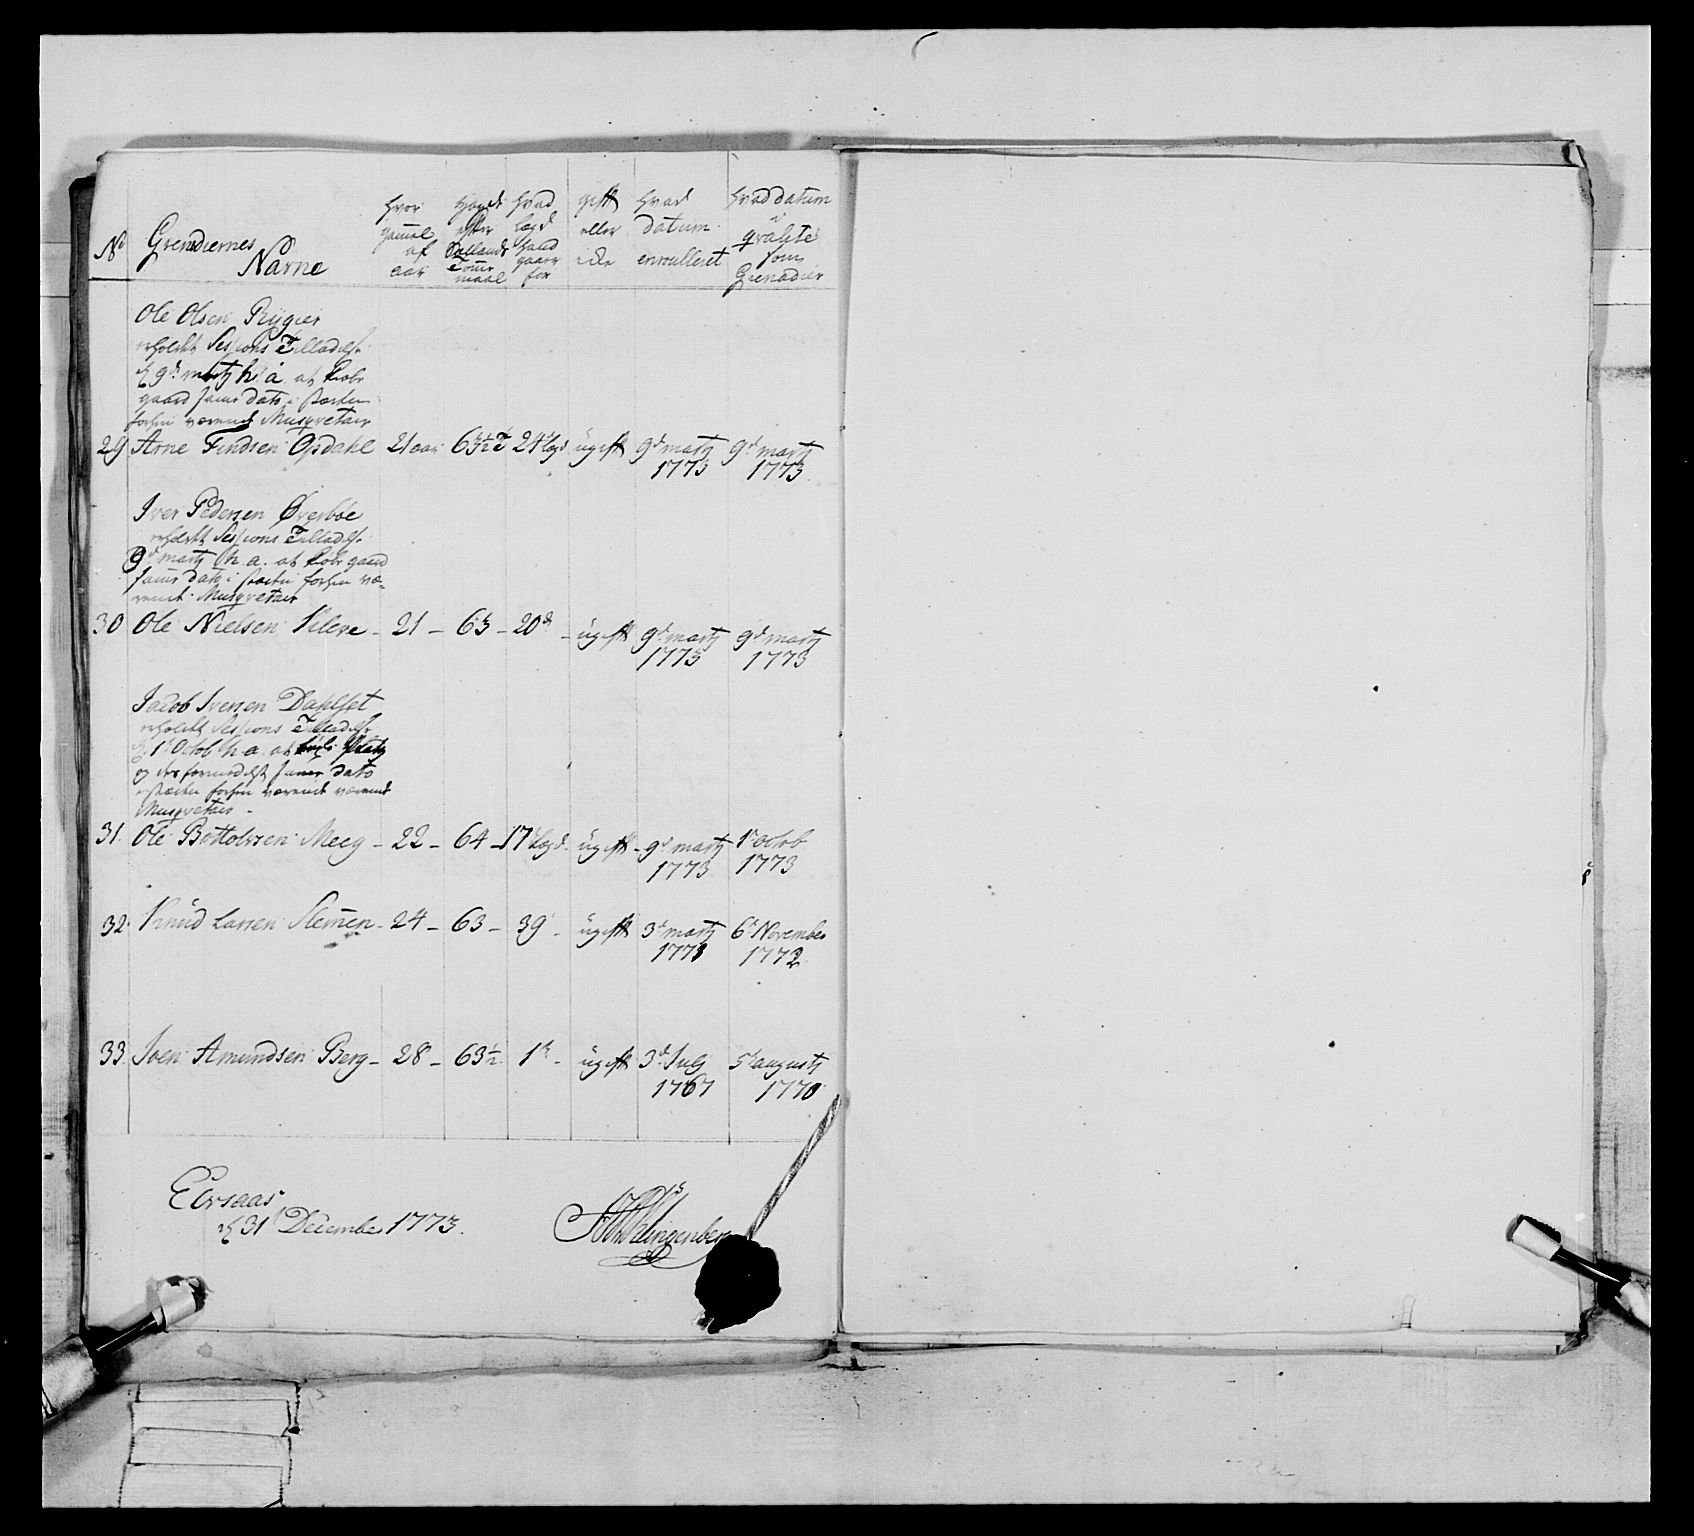 No Grenadiernes Nafne
hvor gammel af aar
høyde efter Sællands Tomme maal
hvad lægd hand gaar for
gift eller icke
hvad datum enroulleret
hvad datum i qvalité som Grenadier
Ole Olsen Rygier
erholdt Sessions Tilladelse
d 9de martz h: a: at kiøbe
gaard samme dato i stæden
forhen værende Musqvetair
29 Arne Findsen Opdahl 21 aar 63½ T 24 lægd ugift 9d martz 1773 9d martz 1773
Iver Pedersen Øvrebøe
erholdt Sessions Tilladelse
9d martz h. a. at kiøbe gaard
samme dato i stæden forhen væ=
rende Musqvetair
30 Ole Nielsen Kleve - 21 - 63 - 20d - ugift 9d martz 1773 9d martz 1773
Jacob Iversen Dahlset
erholdt Sessions Tilladelse
d 1t Octob h. a. at Plads
og der samme dato
i stæden forhen værende værende
Musqvetair -
31. Ole Bottolvsen Meeg - 22 - 64 - 17 Lægd - ugift - 9d martz 1773 1t octob 1773
32. Knud Larsen Slemen - 24 - 63 - 39 - ugift 3d martz 1771 6t November 1772
33. Iven Amundsen Berg - 28 - 63½ 1t - ugift 3d July 1767 5t augusty 1770
d 31t December 1773.
Klingenberg